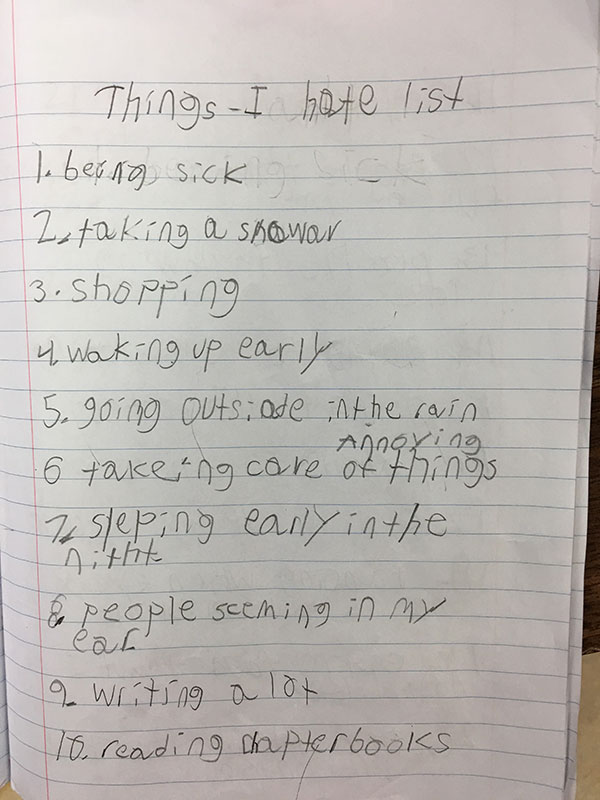 Things-I hate list
1. being sick
2. taking a showar
3. shopping
4. waking up early
5. going outside in the rain
Annoying
6 takeing care of things
7. sleping early in the
nitht
8. people sceming in my
ear
9. writing a lot
10. reading chapter books